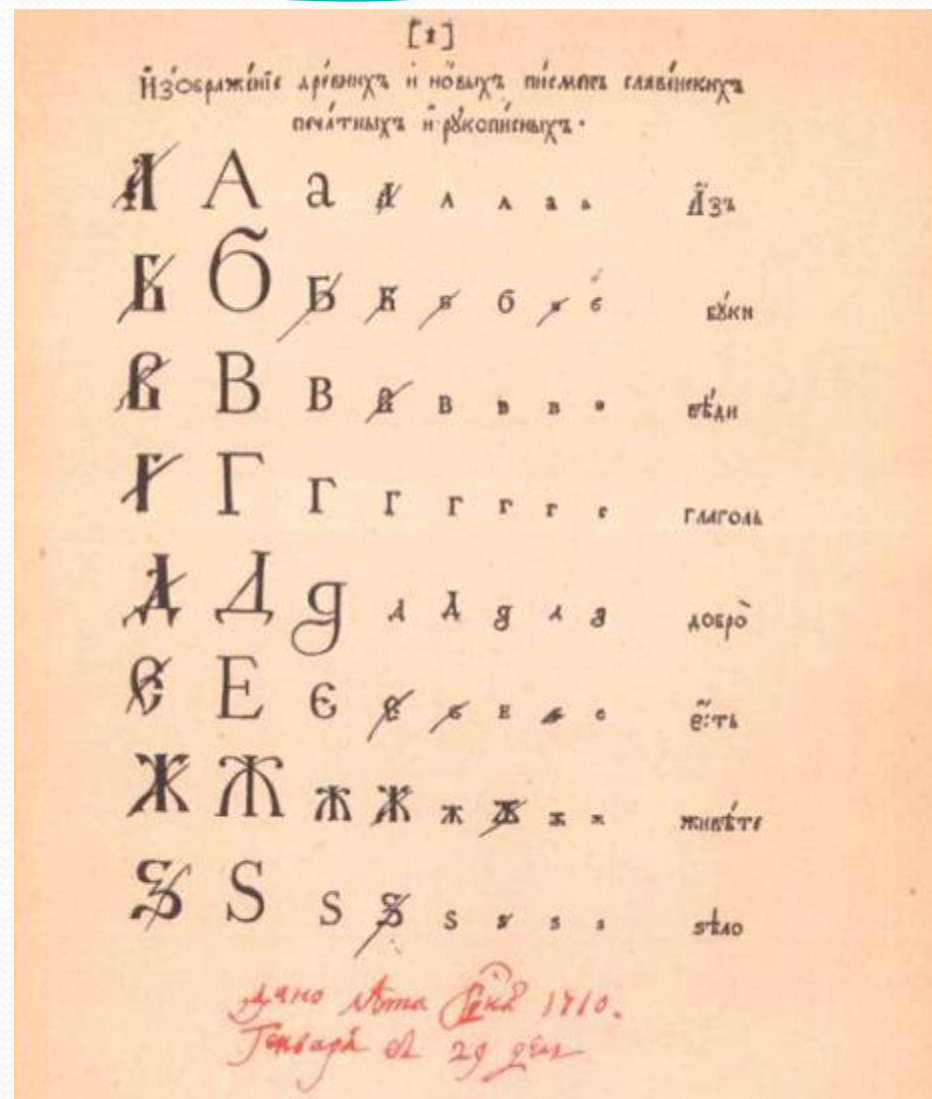 [1]
И҆зѡбраже́нїе дре́внихъ и҆ но́выхъ пи́сменъ славе́нскихъ
печа́тныхъ и҆ рꙋкопи́сныхъ.
А А а А а а а а А҆́зъ
Б Б Б Б Б б б б бꙋ́ки
В В В В В в в в вѣ́ди
Г Г Г Г Г г г г глаголь
Д Д д д д д д д добро̀
Е Е є є є е е е є҆́сть
Ж Ж ж Ж ж ж ж ж живѣ́те
Ѕ Ѕ ѕ Ѕ ѕ ѕ ѕ ѕ ѕѣло
Дано лѣта 1710.
Генваря в 29 день